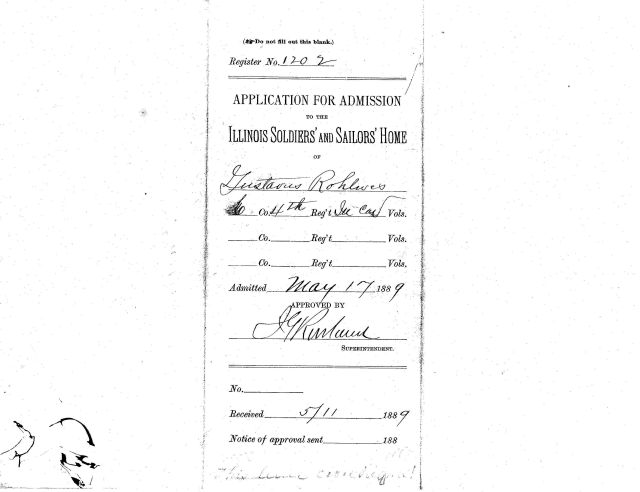 (☞Do not fill out this blank.)
Register No. 1202
APPLICATION FOR ADMISSION
TO THE
ILLINOIS SOLDIERS' AND SAILORS' HOME
OF
Gustavus Rohlwes
Co. 4th Reg't Ill Cav Vols.
Co. Reg't Vols.
Co. Reg't Vols.
Admitted May 17 1889
APPROVED BY
SUPERINTENDENT.
No.
Received 5/11 1889
Notice of approval sent 188